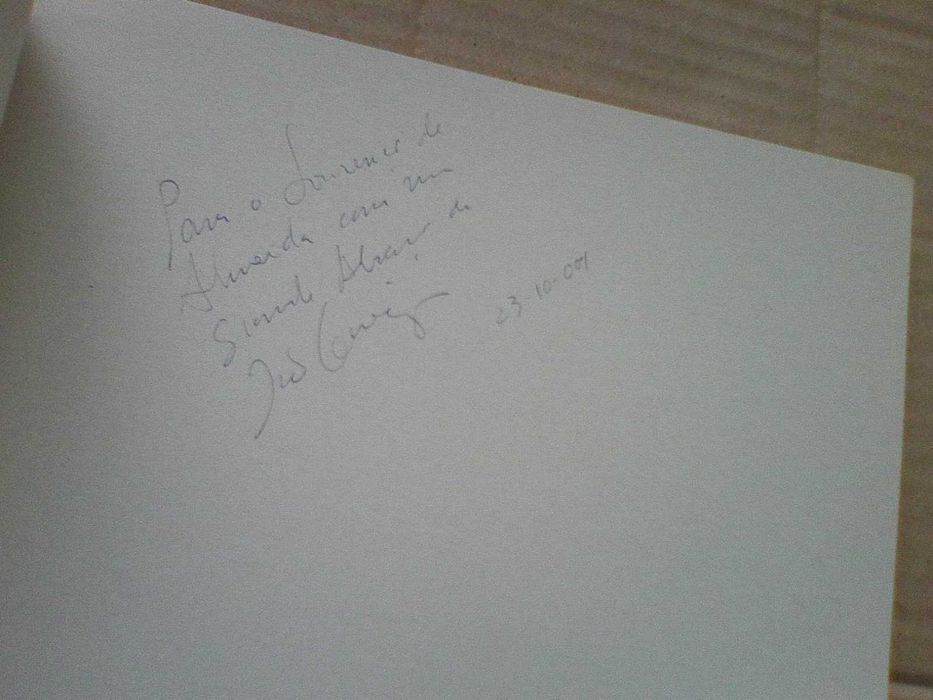 Para o Lourenço de
Almeida com um
Grande Abraço do
José
23-10-09